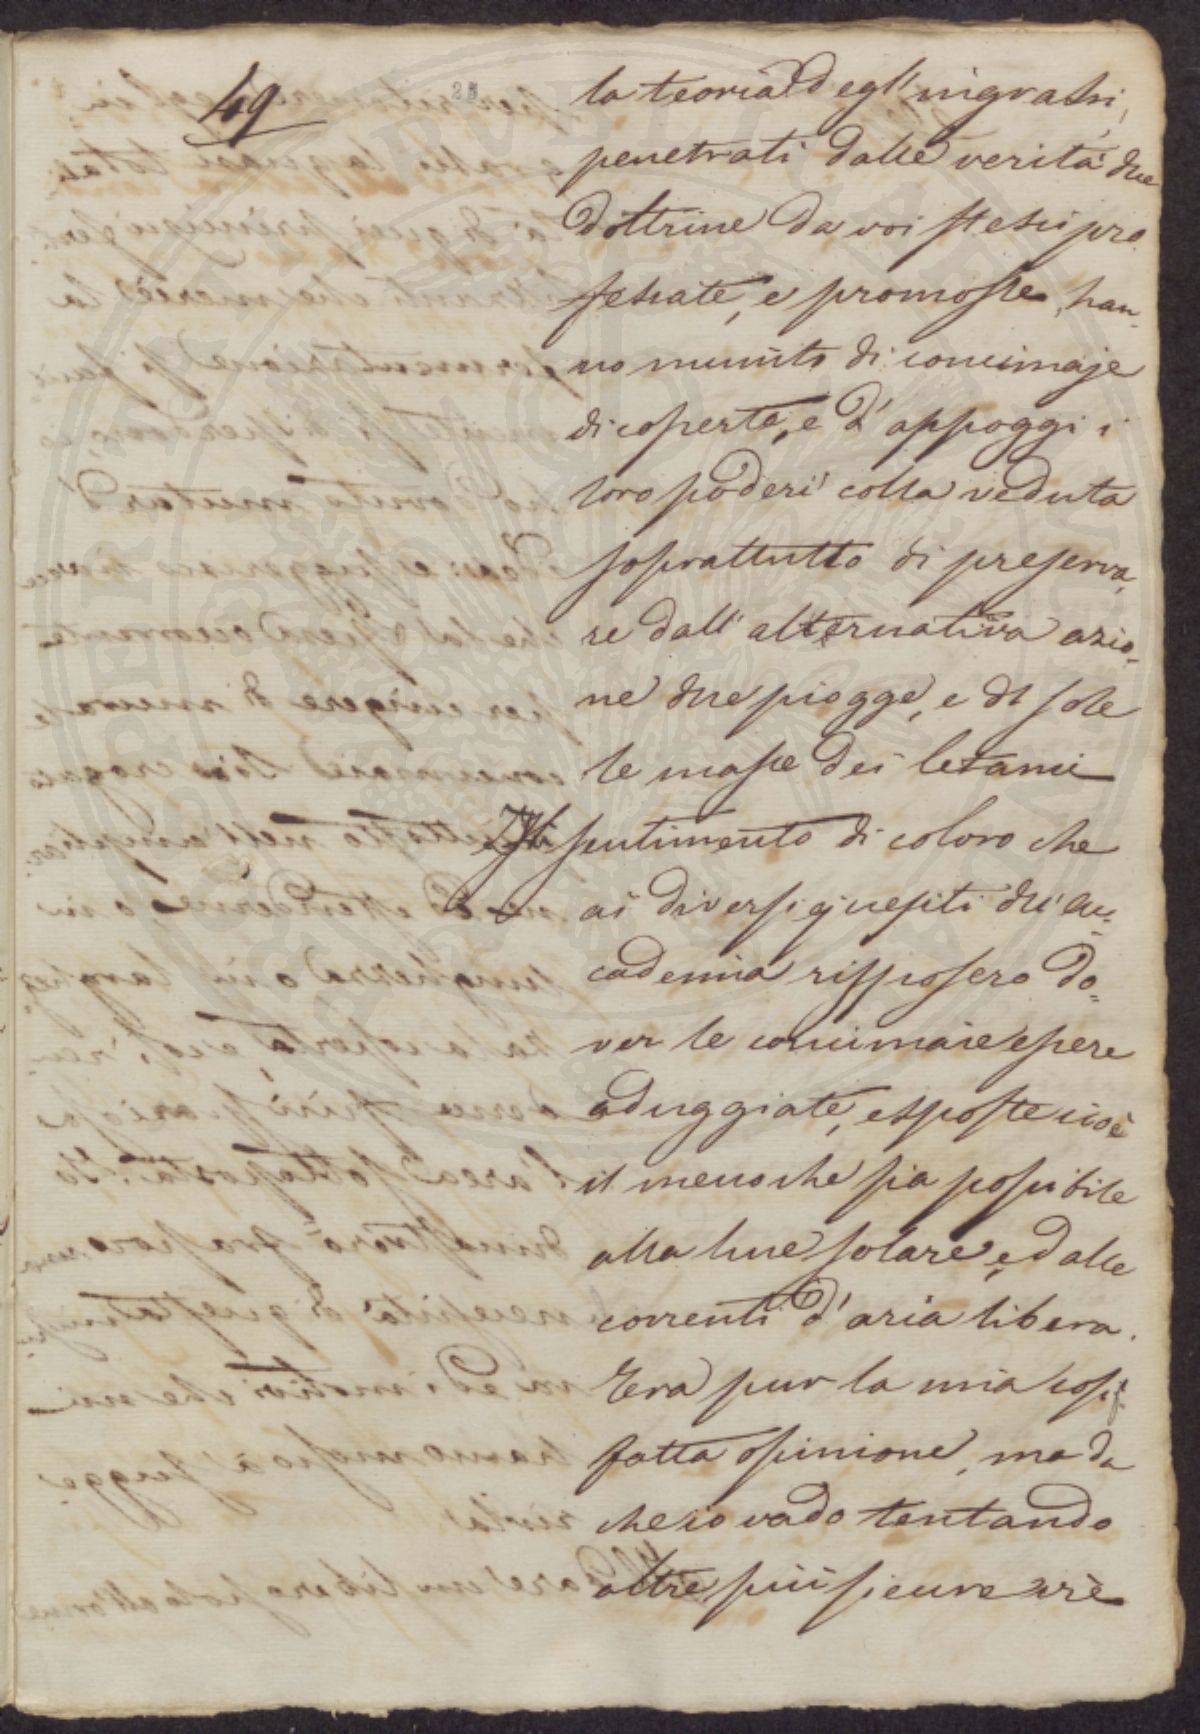 49
la teoria degl'ingrassi,
penetrati dalle verità due
dottrine da voi stessi pro
fessate, e promosse, han-
no munito di concimaje
di coperta, e d'appoggi i
loro poderi colla veduta
soprattutto di preserva-
re dall'alternativa azio-
ne due piogge, e dl sole
le masse dei letami
sentimento di coloro che
ai diversi quesiti dell'Ac-
cademia risposero do-
ver le concimaie essere
aduggiate, esposte cioè
il meno che sia possibile
alla luce solare, ed alle
correnti d'aria libera.
Era pur la mia cosif
fatta opinione, ma da
che io vado tentando
altre più sicure vie